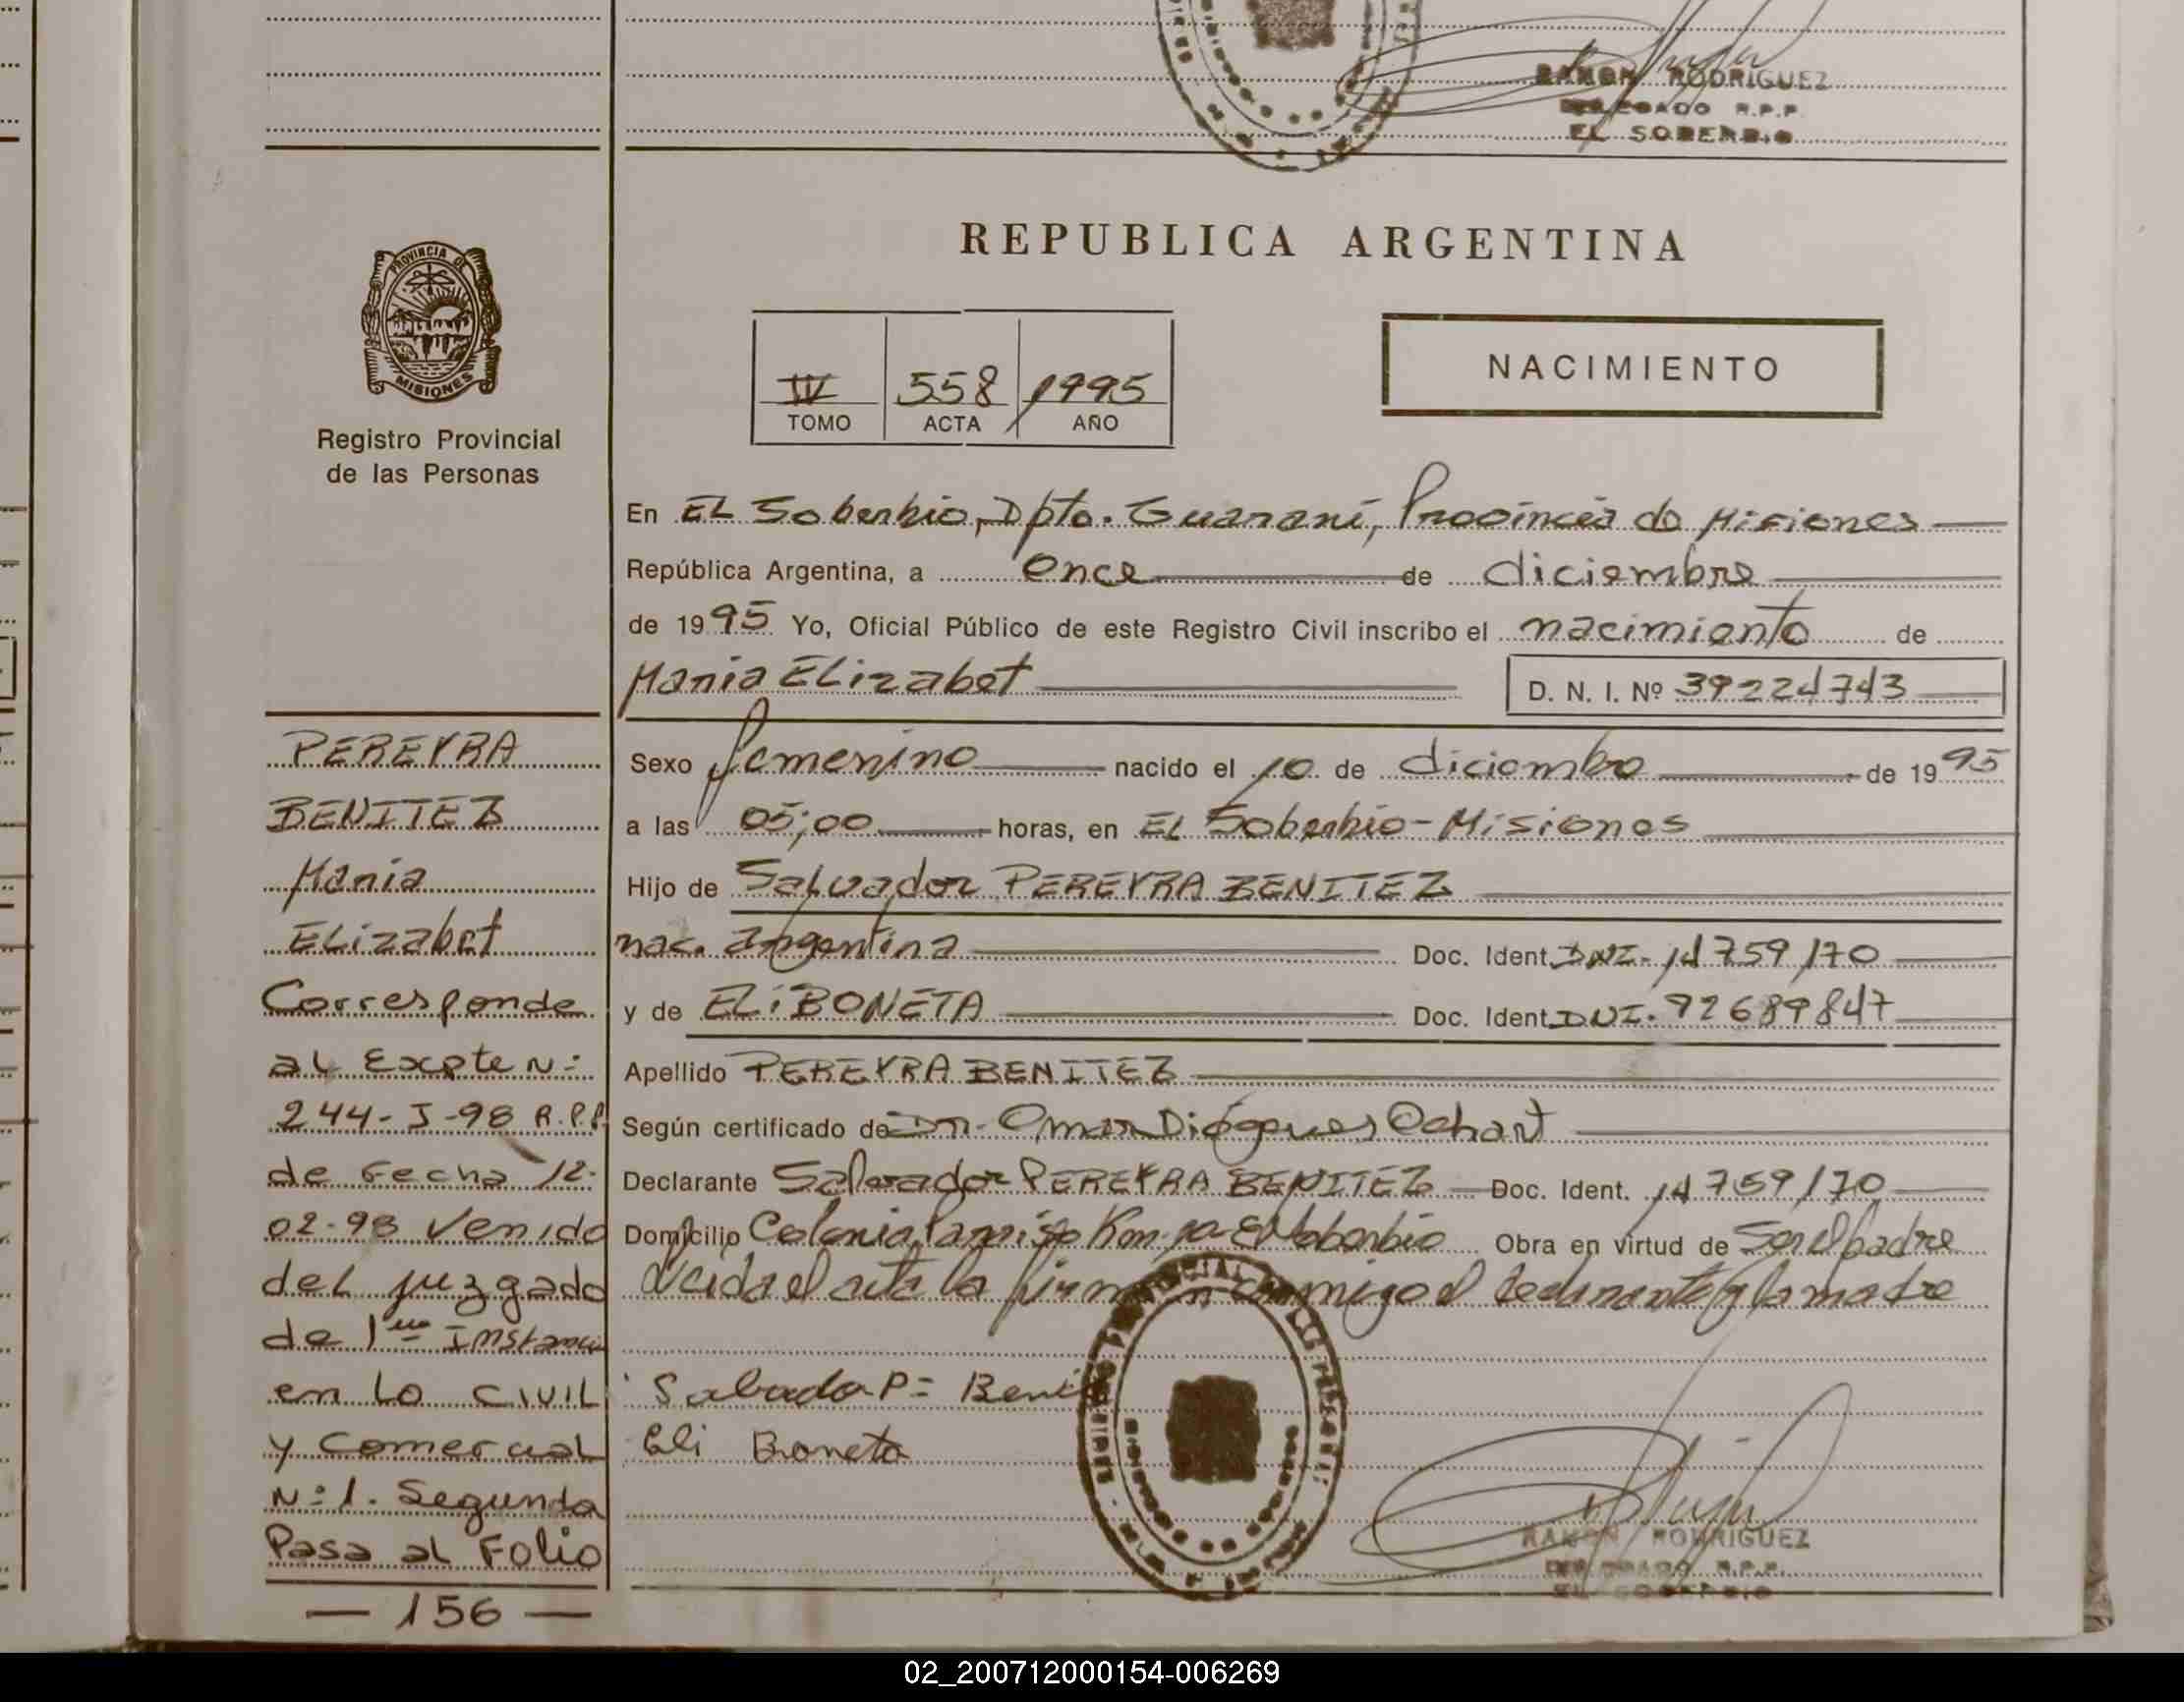 RAMON RODRIGUEZ
DELEGADO R.P.P.
EL SOBERBIO
PROVINCIA DE
MISIONES
Registro Provincial
de las Personas
REPUBLICA ARGENTINA
NACIMIENTO
IV 558 1995
TOMO ACTA AÑO
En EL Soberbio, Dpto. Guaraní, Provincia de Misiones
República Argentina, a once de diciembre
de 1995 Yo, Oficial Público de este Registro Civil inscribo el nacimiento de
Maria Elizabet D. N. I. Nº 39224743
Sexo femenino nacido el 10 de diciembre de 1995
a las 05;00 horas, en EL Soberbio - Misiones
Hijo de Salvador PEREYRA BENITEZ
nac. argentina Doc. Ident. DNI- 14759170
y de ELi BONETA Doc. Ident. DNI. 92689847
Apellido PEREYRA BENITEZ
Según certificado de Dr. Omar Diógenes Ochart
Declarante Salvador PEREYRA BENITEZ Doc. Ident. 14759170
Domicilio Colonia Paraiso Km El Soberbio Obra en virtud de Ser el padre
Leida el acta la firman conmigo el declarante y la madre
Eli Boneta
RAMON RODRIGUEZ
DELEGADO R.P.P.
EL SOBERBIO
PEREYRA
BENITEZ
Maria
Elizabet
Corresponde
al Expte N:
244-J-98 R.P.P.
de Fecha 12-
02-98 Venido
del juzgado
de 1era Instancia
en Lo CIVIL
y Comercial
N: 1. Segunda
Pasa al Folio
— 156 —
02_200712000154-006269